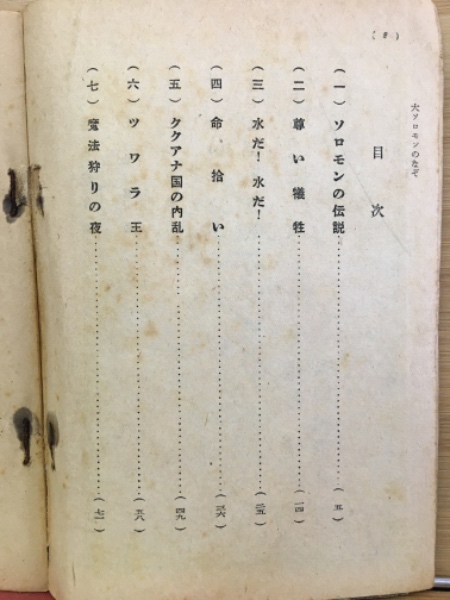 大ソロモンのなぞ
目次
(一) ソロモンの伝説……(五)
(二) 尊い犠牲……(一四)
(三) 水だ! 水だ!……(二五)
(四) 命拾い……(三六)
(五) ククアナ国の内乱……(四九)
(六) ツワラ王……(五八)
(七) 魔法狩りの夜……(七一)